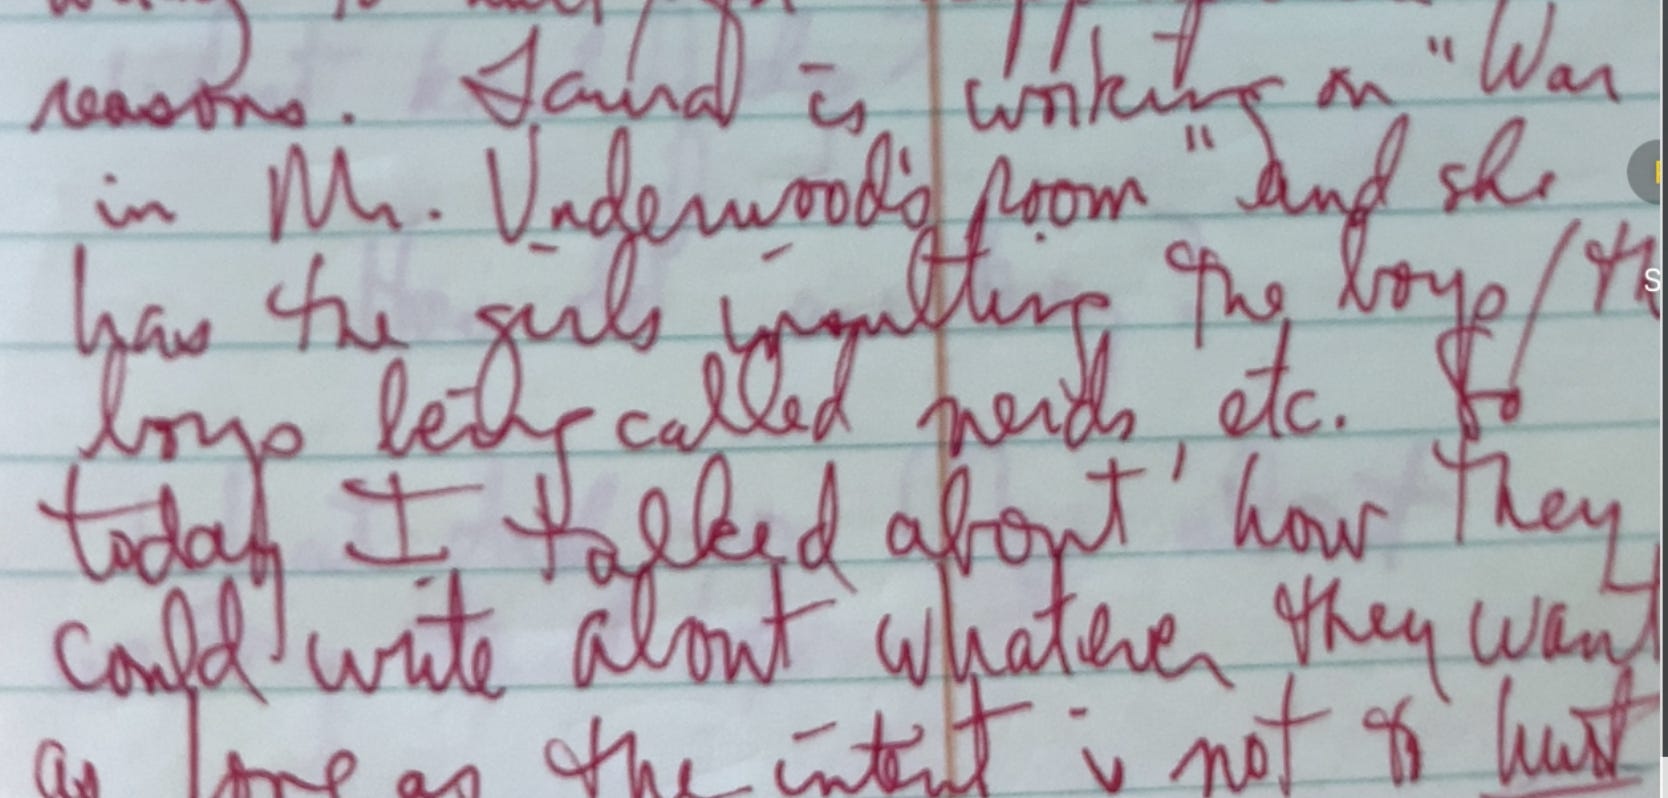 reasons. Laura is working on "War
in Mr. Underwood's Room" and she
has the girls insulting the boys / th
boys being called nerds, etc. So
today I talked about how they
could write about whatever they want
as long as the intent is not to hurt